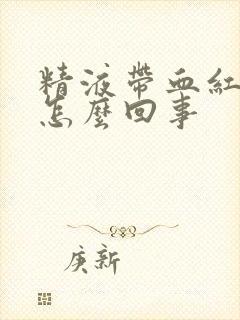 精液帶血紅
怎麼回事
庚新